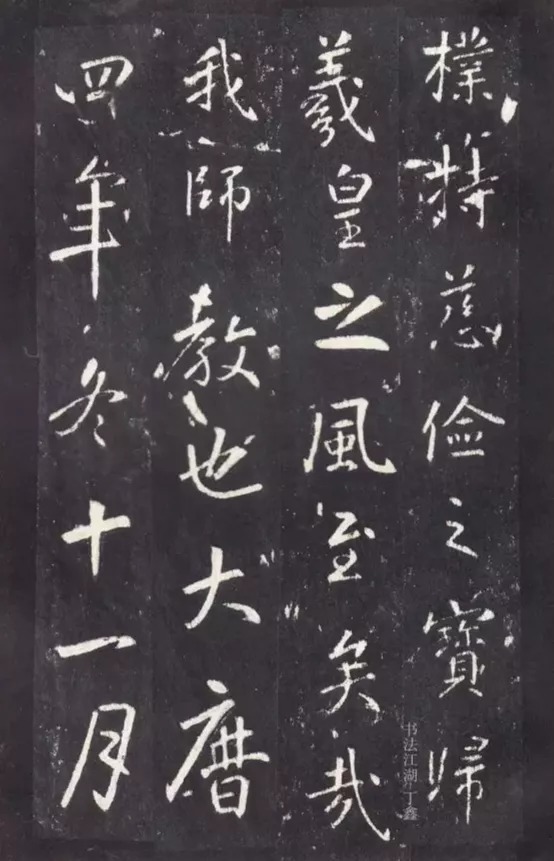 樸蒋慈儉之寶歸
羲皇之風至矣哉
我師教也大曆
四年冬十一月
书法江湖 丁鑫